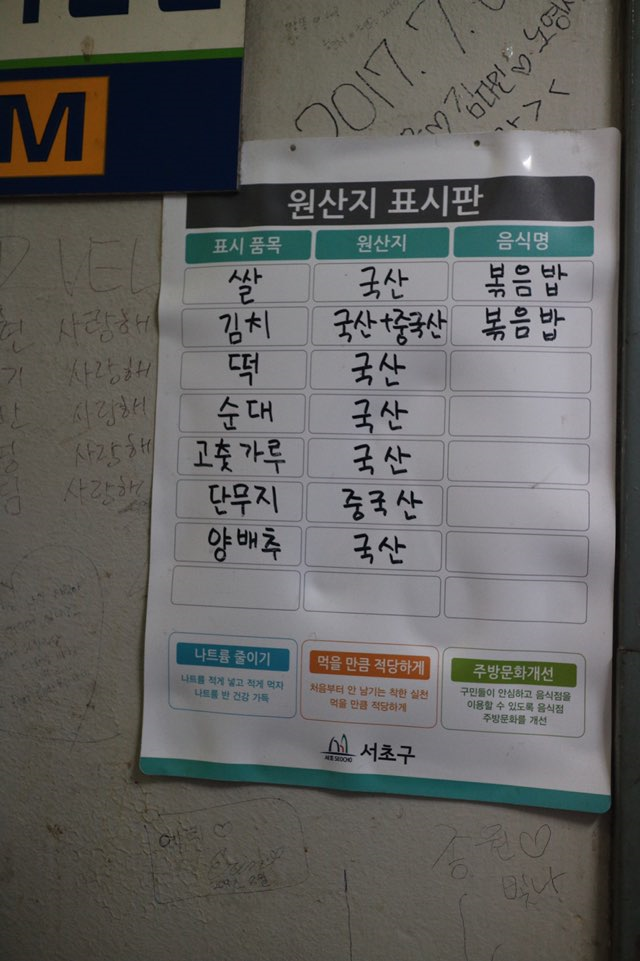 M
2017. 7.
원산지 표시판
표시 품목 원산지 음식명
쌀 국산 볶음밥
김치 국산+중국산 볶음밥
떡 국산
순대 국산
고춧가루 국산
단무지 중국산
양배추 국산
사랑해
사랑해
사랑해
사랑해
사랑해
나트륨 줄이기
나트륨 적게 넣고 적게 먹자
나트륨 반 건강 가득
먹을 만큼 적당하게
처음부터 안 남기는 착한 실천
먹을 만큼 적당하게
주방문화개선
구민들이 안심하고 음식점을
이용할 수 있도록 음식점
주방문화를 개선
서초 SEOCHO 서초구